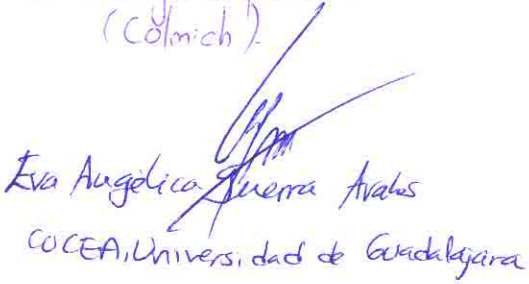 (Colmich).
Eva Angélica Guerra Avalos
CUCEA, Universidad de Guadalajara